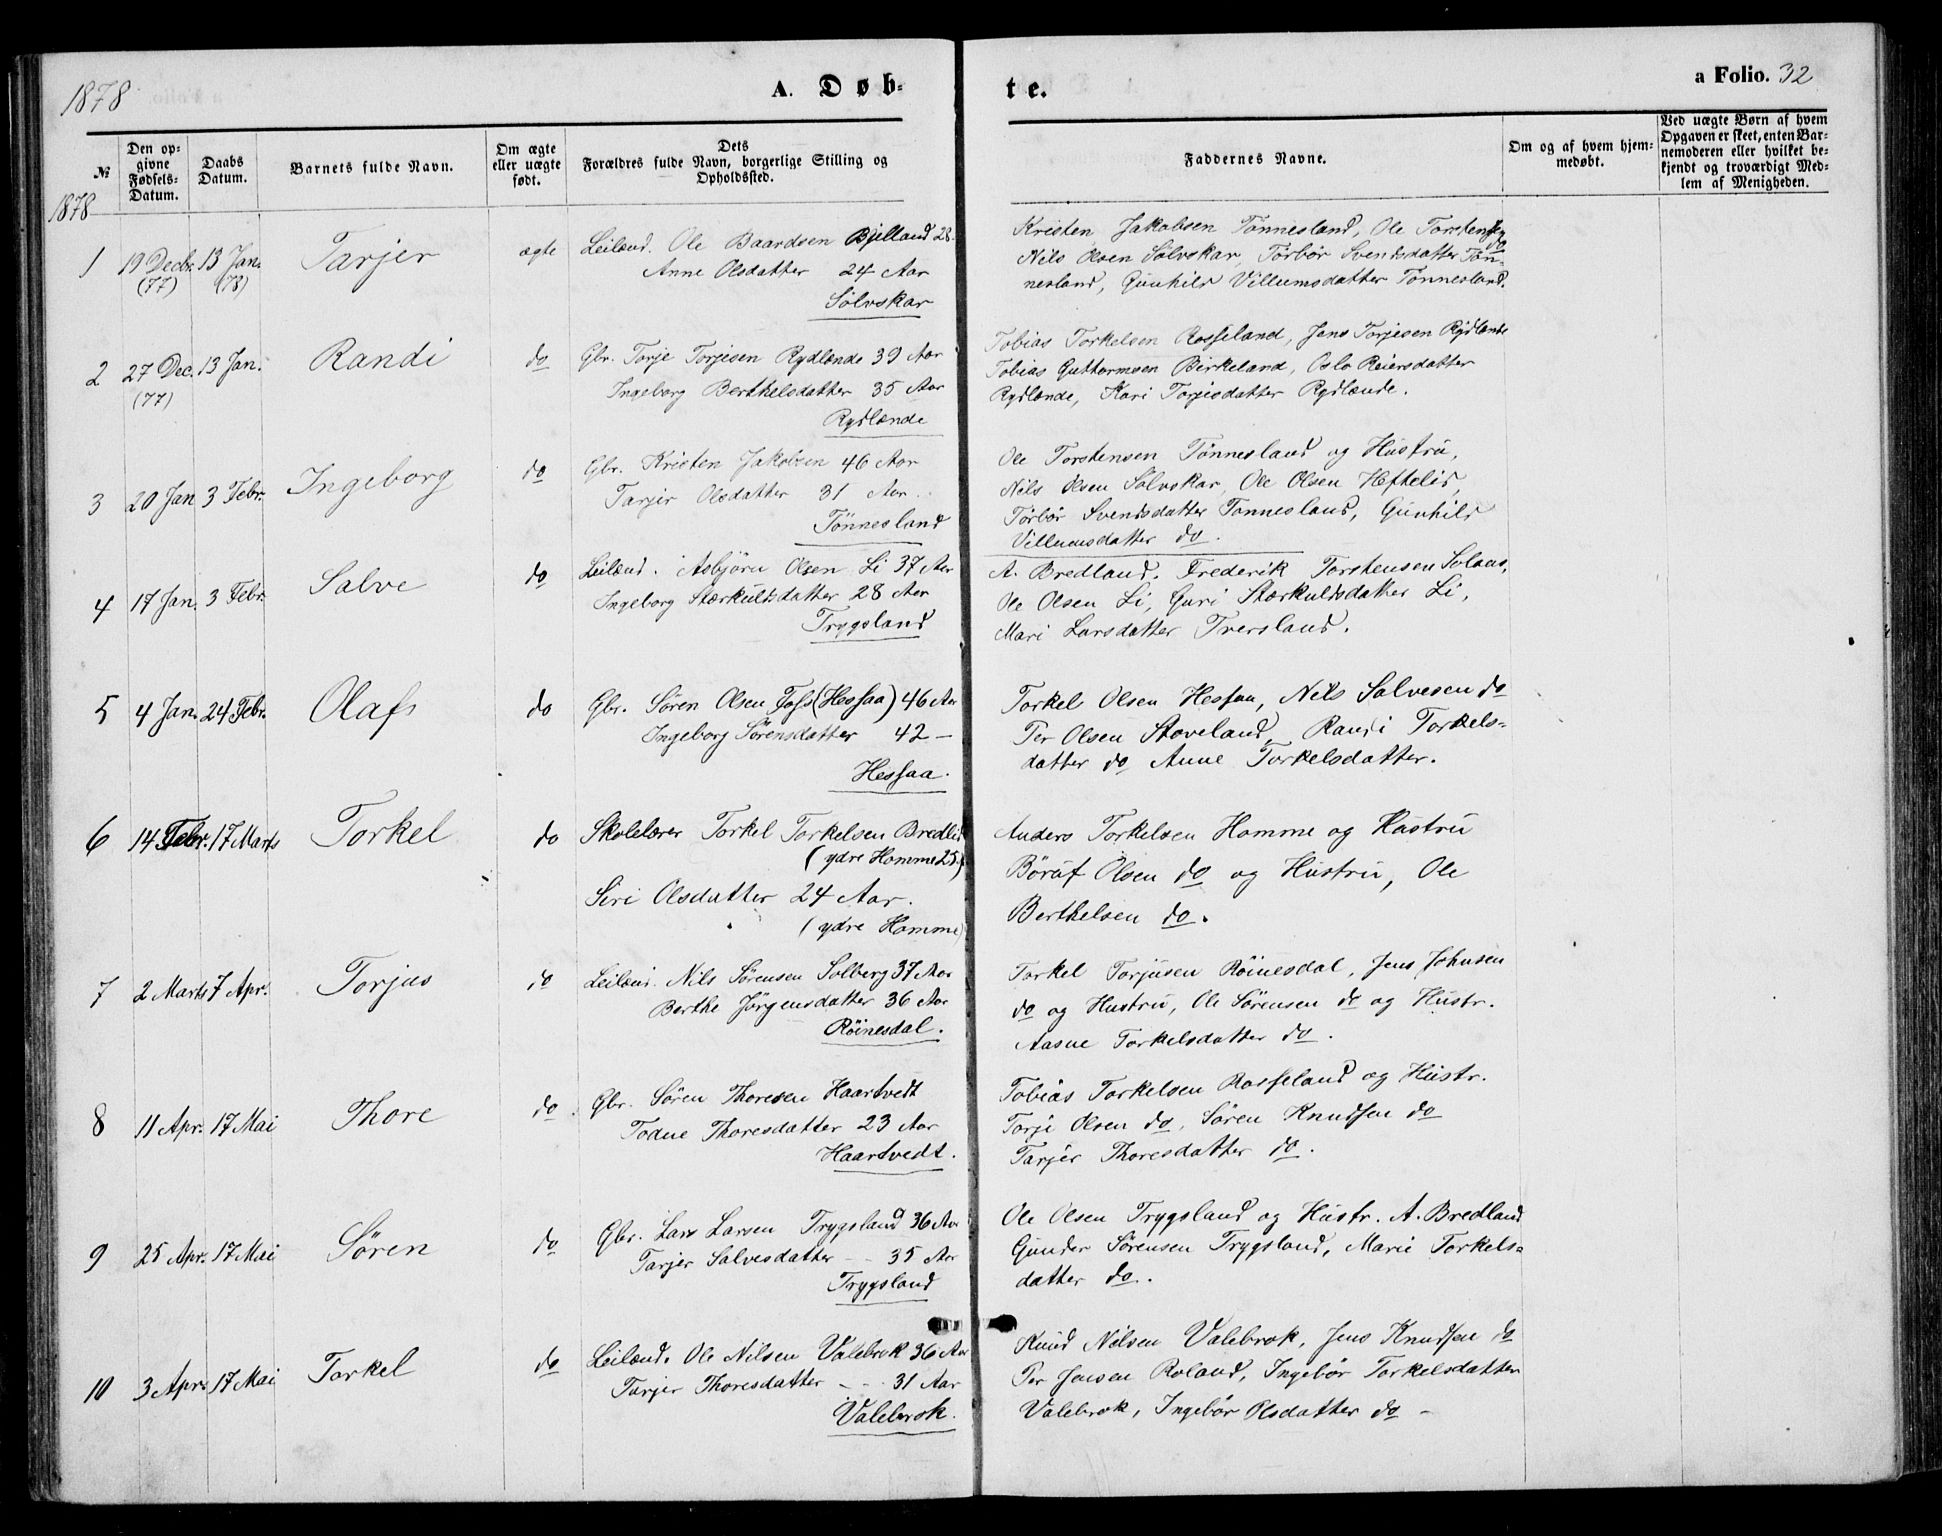 1878
A. Døb-
te.
a Folio. 32
№
Den op-
givne
Fødsels-
Datum.
Daabs
Datum.
Barnets fulde Navn.
Om ægte
eller uægte
født.
Dets
Forældres fulde Navn, borgerlige Stilling og
Opholdssted.
Faddernes Navne.
Om og af hvem hjem-
medøbt.
Ved uægte Børn af hvem
Opgaven er skeet, enten Bar-
nemoderen eller hvilket be-
kjendt og troværdigt Med-
lem af Menigheden.
1878
1 19 Decbr. 13 Jan. Tarjer ægte Leilænd. Ole Baardsen Bjelland 28.
(77) (78) Anne Olsdatter 24 Aar
Sølvskar
Kristen Jakobsen Tønnesland, Ole Torstensen
do
Nils Olsen Sølvskar, Tørbør Svendsdatter Tøn-
nesland, Gunhild Villumsdatter Tønnesland.
2 27 Dec. 13 Jan. Randi do Gbr. Torje Torjesen Rydlænde 39 Aar
(77) Ingeborg Berthelsdatter 35 Aar
Rydlænde
Tobias Torkelsen Rosseland, Jens Torjesen Rydlænde
Tobias Guttormsen Birkeland, Oslo Reiersdatter
Rydlænde, Kari Torjesdatter Rydlænde.
3 20 Jan 3 Febr. Ingeborg do Gbr. Kristen Jakobsen 46 Aar
Tarjer Olsdatter 31 Aar.
Tønnesland
Ole Torstensen Tønnesland og Hustru,
Nils Olsen Sølvskar, Ole Olsen Heftelid,
Tørbør Svendsdatter Tønnesland, Gunhild
Villumsdatter do.
4 17 Jan. 3 Febr. Salve do Leilænd. Asbjørn Olsen Li 37 Aar
Ingeborg Stærkulsdatter 28 Aar
Trygsland
A. Bredland. Frederik Torstensen Solaas,
Ole Olsen Li, Guri Stærkulsdatter Li,
Mari Larsdatter Treesland.
5 4 Jan. 24 Febr. Olaf do Gbr. Søren Olsen Foss (Hessaa) 46 Aar
Ingeborg Sørensdatter 42 —
Hessaa.
Torkel Olsen Hessaa, Nils Salvesen do
Per Olsen Stoveland, Randi Torkels-
datter do Anne Torkelsdatter.
6 14 Febr. 17 Marts Torkel do Skolelærer Torkel Torkelsen Bredlid
(ydre Homme 25)
Siri Olsdatter 24 Aar.
(ydre Homme)
Anders Torkelsen Homme og Hustru
Børuf Olsen do og Hustru, Ole
Berthelsen do.
7 2 Marts 7 Apr. Torjus do Leilænd. Nils Sørensen Solberg 37 Aar
Berthe Jørgensdatter 36 Aar
Røinesdal.
Torkel Torjusen Røinesdal, Jens Johnsen
do og Hustru, Ole Sørensen do og Hustr.
Aasne Torkelsdatter do.
8 11 Apr. 17 Mai Thore do Gbr. Søren Thoresen Haartvedt
Todne Thoresdatter 23 Aar
Haartvedt.
Tobias Torkelsen Rosseland og Hustr.
Torje Olsen do, Søren Knudsen do
Tarjer Thoresdatter do.
9 25 Apr. 17 Mai Søren do Gbr. Lars Larsen Trygsland 36 Aar
Tarjer Salvesdatter — 35 Aar
Trygsland
Ole Olsen Trygsland og Hustr. A. Bredland
Gunder Sørensen Trygsland, Marie Torkels-
datter do.
10 3 Apr. 17 Mai Torkel do Leilænd. Ole Nilsen Valebrok 36 Aar
Tarjer Thoresdatter - - 31 Aar
Valebrok.
Knud Nilsen Valebrok, Jens Knudsen do
Per Jensen Roland, Ingebør Torkelsdatter
Valebrok, Ingebør Olsdatter do —